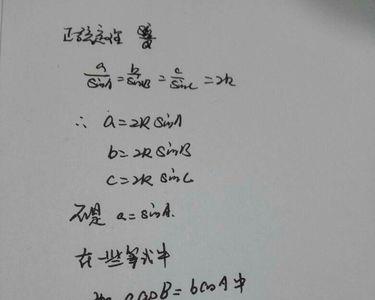 正弦定理
a/sinA = b/sinB = c/sinC = 2R
∴ a = 2R sinA
b = 2R sinB
c = 2R sinC
不是 a = sinA.
在一些等式中
如 acosB = bcosA 中